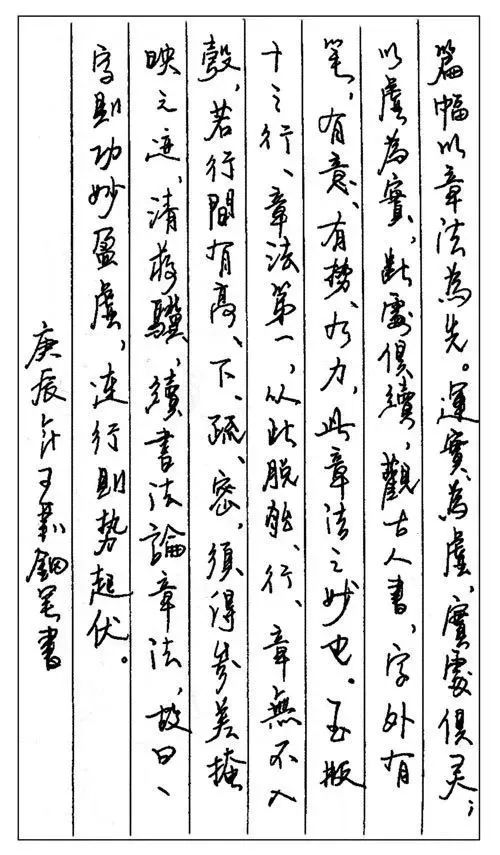 篇幅以章法為先。運實為虛，實處俱灵；
以虛為實，斷處俱續，觀古人書，字外有
笔，有意、有势、有力，此章法之妙也。玉版
十三行、章法第一，从此脱胎、行、章無不入
彀，若行間有高、下、疏、密，須得參差掩
映之迹，清蒋驥，續書法論章法，故曰、
字則功妙盈虛，連行則势起伏。
庚辰年王 钢笔書